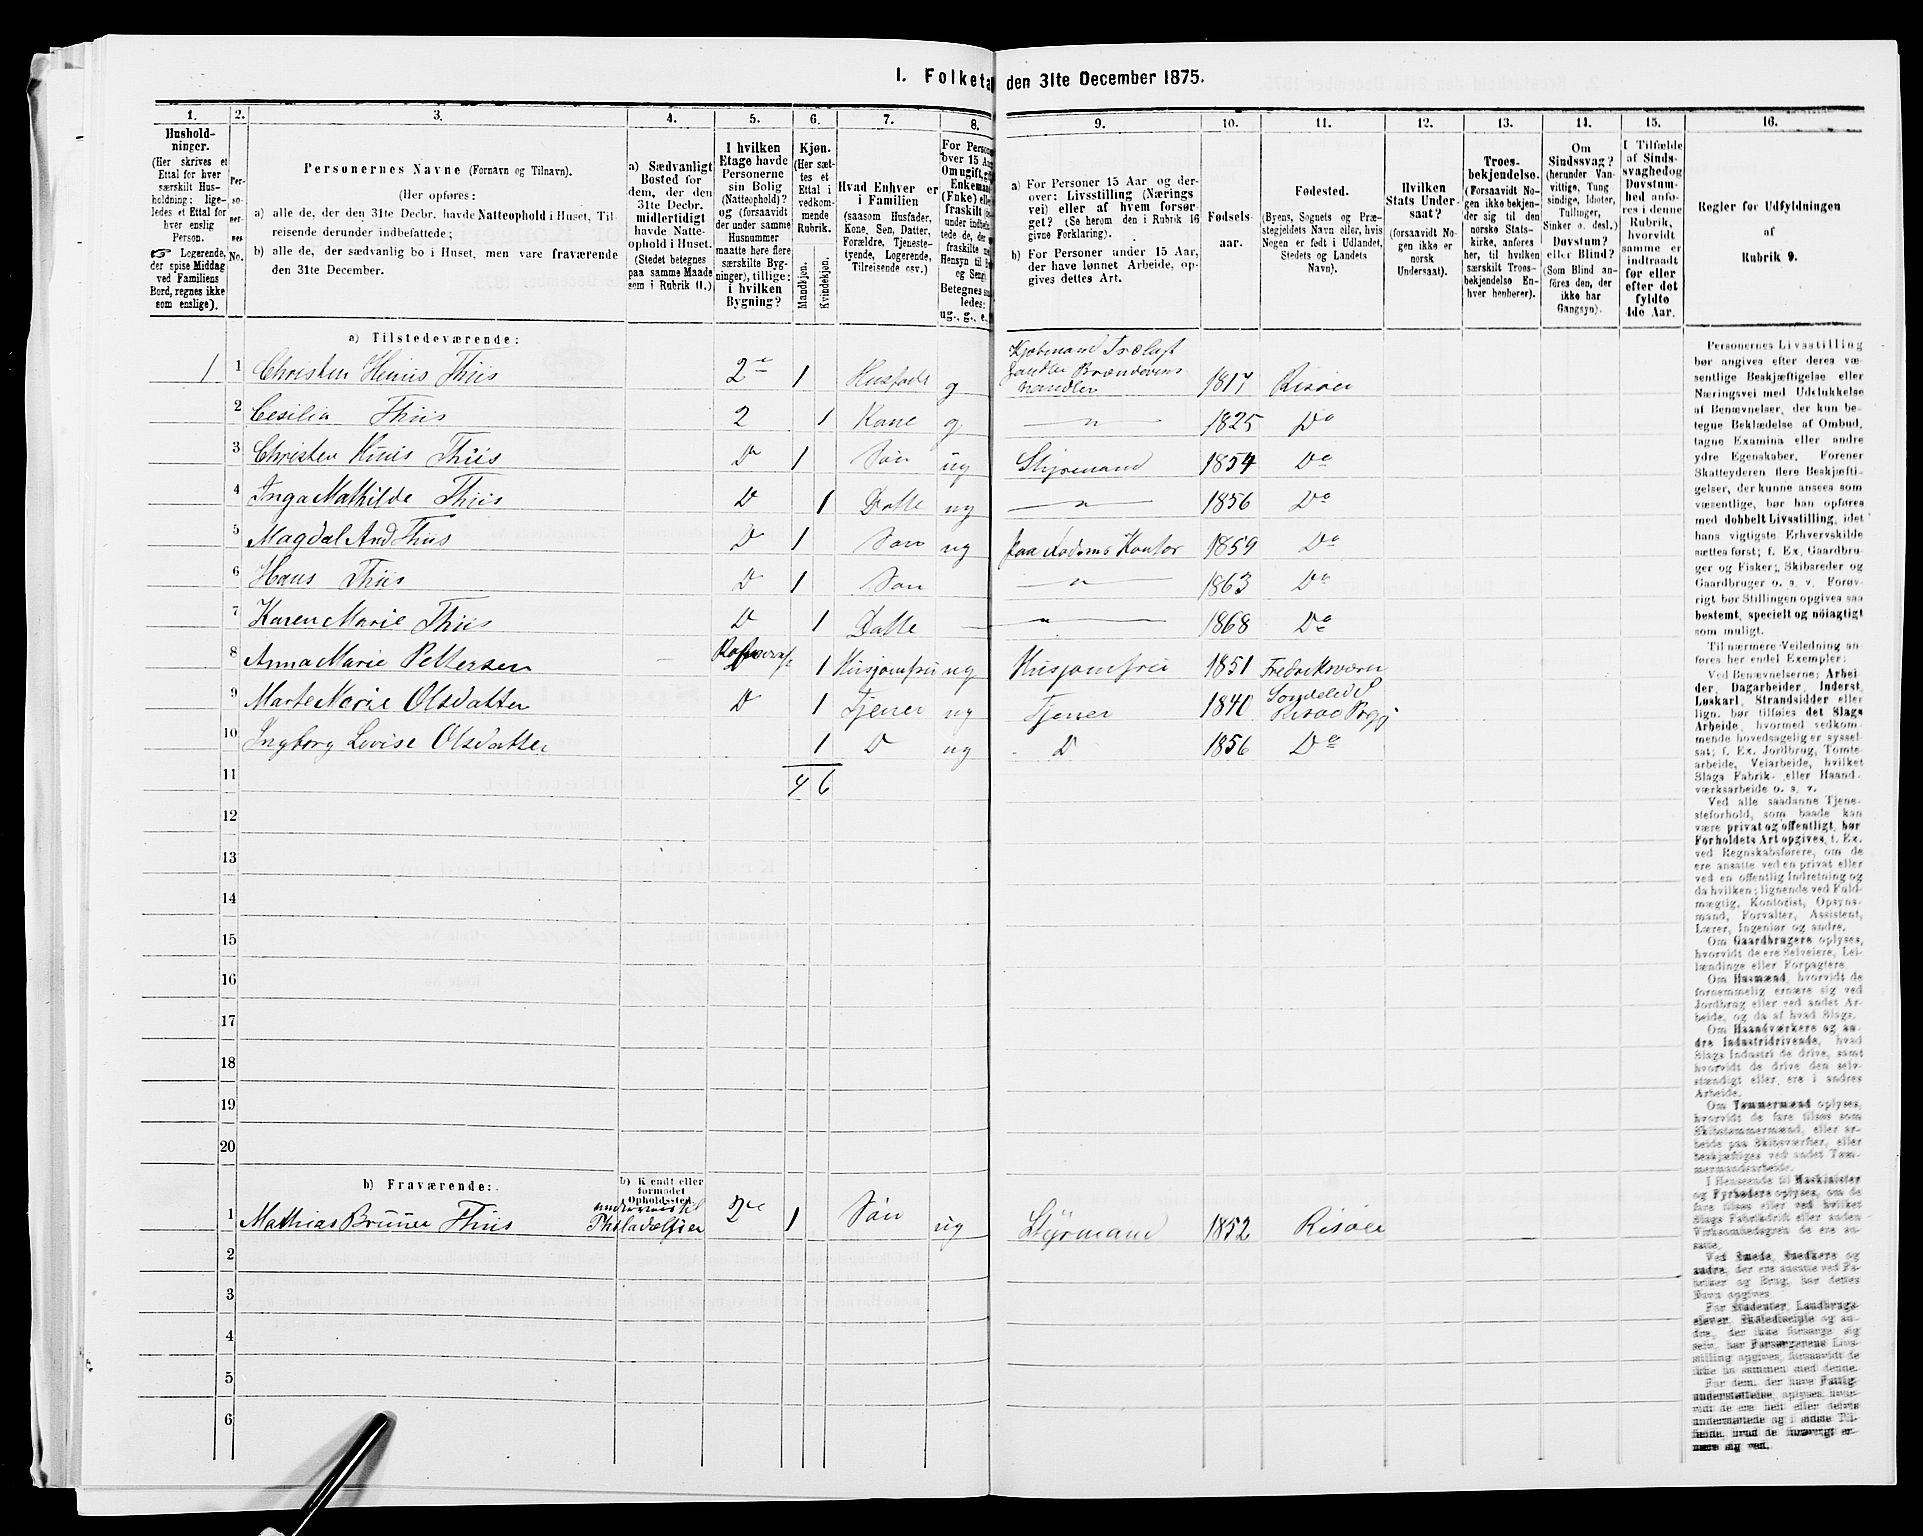 I. Folketal den 31te December 1875.
1. 2. 3. 4. 5. 6. 7. 8. 9. 10. 11. 12. 13. 14. 15. 16.
Hushold-
ninger.
(Her skrives et
Ettal for hver
særskilt Hus-
holdning; lige-
ledes et Ettal for
hver enslig
Person.
☞ Logerende,
der spise Middag
ved Familiens
Bord, regnes ikke
som enslige).
Per-
so-
ner-
nes
No.
Personernes Navne (Fornavn og Tilnavn).
(Her opføres:
a) alle de, der den 31te Decbr. havde Natteophold i Huset, Til-
reisende derunder indbefattede;
b) alle de, der sædvanlig bo i Huset, men vare fraværende
den 31te December.
a) Sædvanligt
Bosted for
dem, der den
31te Decbr.
midlertidigt
havde Natte-
ophold i Huset.
(Stedet betegnes
paa samme Maade
som i Rubrik 11.)
I hvilken
Etage havde
Personerne
sin Bolig
(Natteophold)?
og (forsaavidt
der under samme
Husnummer
maatte høre flere
særskilte Byg-
ninger), tillige:
i hvilken
Bygning?
Kjøn.
(Her sæt-
tes et
Ettal i
vedkom-
mende
Rubrik.
Mandkjøn.
Kvindekjøn.
Hvad Enhver er
i Familien
(saasom Husfader,
Kone, Søn, Datter,
Forældre, Tjeneste-
tyende, Logerende,
Tilreisende osv.)
For Person
over 15 Aar
Om ugift, gi
Enkemand
(Enke) elle
fraskilt
Betegnes
ledes:
ug., g., e.,
a) For Personer 15 Aar og der-
over: Livsstilling (Nærings
vei) eller af hvem forsør-
get? (Se herom den i Rubrik 16
givne Forklaring).
b) For Personer under 15 Aar,
der have lønnet Arbeide, op-
gives dettes Art.
Fødsels-
aar.
Fødested.
(Byens, Sognets og Præ-
stegjeldets Navn eller, hvis
Nogen er født i Udlandet,
Stedets og Landets
Navn).
Hvilken
Stats Under-
saat?
(forsaavidt No-
gen ikke er
norsk
Undersaat).
Troes-
bekjendelse.
(Forsaavidt No-
gen ikke bekjen-
der sig til den
norske Stats-
kirke, anføres
her, til hvilken
særskilt Troes-
bekjendelse En-
hver henhører).
Om
Sindssvag?
(herunder Van-
vittige, Tung
sindige, Idioter,
Tullinger,
Sinker o. desl.)
Døvstum?
eller Blind?
(Som Blind an-
føres den, der
ikke har
Gangsyn).
I Tilfælde
af Sinds-
svaghed og
Døvstum-
hed anfø-
res i denne
Rubrik,
hvorvidt
samme er
indtraadt
før eller
efter det
fyldte
4de Aar.
Regler for Udfyldningen
af
Rubrik 9.
a) Tilstedeværende:
1 1 Christen Henius Thiis 2 1 Husfader g Kjøbmand Trælast handler Brændevins handler 1817 Risøer
2 Cesilia Thiis 2 1 Kone g — " — 1825 Do
3 Christen Thiis Do 1 Søn ug Styrmand 1854 Do
4 Inga Mathilde Thiis D 1 Datte ug — " — 1856 Do
5 Magdal And Thiis D 1 Søn ug paa Kontor 1859 Do
6 Hans Thiis D 1 Søn — " — 1863 Do
7 Karen Marie Thiis D 1 Datte — — " — 1868 Do
8 Anna Marie Pettersen 1 Husjomfru ug Husjomfru 1851 Fredriksværn
9 Marte Marie Olsdatter D 1 Tjener ug Tjener 1840 Søndeled S Risøe Prgj
10 Ingborg Lovise Olsdatter 1 D ug D 1856 Do
11 4 6
12
13
14
15
16
17
18
19
20
b) Fraværende:
b) Kjendt eller
formodet
Opholdssted.
1 Mathias Bruner Thiis underveis til Philadelfier 2 1 Søn ug Styrmand 1852 Risøer
2
3
4
5
6
Personernes Livsstilling
bør angives efter deres væ-
sentlige Beskjæftigelse eller
Næringsvei med Udelukkelse
af Benævnelser, der kun be-
tegne Beklædelse af Ombud,
tagne Examina eller andre
ydre Egenskaber. Forener
Skatteyderen flere Beskjæfti-
gelser, der kunne ansees som
væsentlige, bør han opføres
med dobbelt Livsstilling, idet
hans vigtigste Erhvervskilde
sættes først; f. Ex. Gaardbru-
ger og Fisker; Skibsreder og
Gaardbruger o. s. v. Forøv-
rigt bør Stillingen opgives saa
bestemt, specielt og nöiagtigt
som muligt.
Til nærmere Veiledning an-
føres her endel Exempler:
Ved Benævnelserne: Arbei-
der, Dagarbeider, Inderst,
Løskarl, Strandsidder eller
lign. bør tilføies det Slags
Arbeide, hvormed vedkom-
mende hovedsagelig er syssel-
sat; f. Ex. Jordbrug, Tomte-
arbeide, Veiarbeide, hvilket
Slags Fabrik- eller Haand-
værksarbeide o. s. v.
Ved alle saadanne Tjene-
steforhold, som baade kan
være privat og offentligt, bør
Forholdets Art opgives, f. Ex.
ved Regnskabsførere, om de
ere ansatte ved en privat eller
ved en offentlig Indretning og
da hvilken; lignende ved Fuld-
mægtig, Kontorist, Opsyns-
mand, Forvalter, Assistent,
Lærer, Ingeniør og andre.
Om Gaardbrugere oplyses,
hvorvidt de ere Selveiere, Lei-
lændinge eller Forpagtere
Om Husmænd, hvorvidt de
fornemmelig ernære sig ved
Jordbrug eller ved andet Ar-
beide, og da af hvad Slags.
Om Haandværkere og an-
dre Industridrivende, hvad
Slags Industri de drive, samt
hvorvidt de drive den selv-
stændigt eller ere i andres
Arbeide.
Om Tømmermænd oplyses,
hvorvidt de fare tilsøs som
Skibstømmermænd, eller ar-
beide paa Skibsværfter, eller
beskjæftiges ved andet Tøm-
mermandsarbeide.
I Henseende til Maskinister
og Fyrbødere oplyses, om de
fare tilsøs eller ved hvilket
Slags Fabrikdrift eller anden
Virksomhedsgren de ere an-
satte.
Ved Smede, Snedkere og
andre, der ere ansatte ved Fa-
briker og Brug, bør dettes
Navn opgives.
For Studenter, Landbrugs-
elever, Skoledisciple og an-
dre, der ikke forsørge sig
selv, bør Forsørgerens Livs-
stilling opgives, forsaavidt de
ikke bo sammen med denne.
For dem, der have Fattig-
understøttelse, oplyses, hvor-
vidt de ere helt eller delvis
understøttede og i sidste Til-
fælde, hvad de forøvrigt er-
nære sig ved.